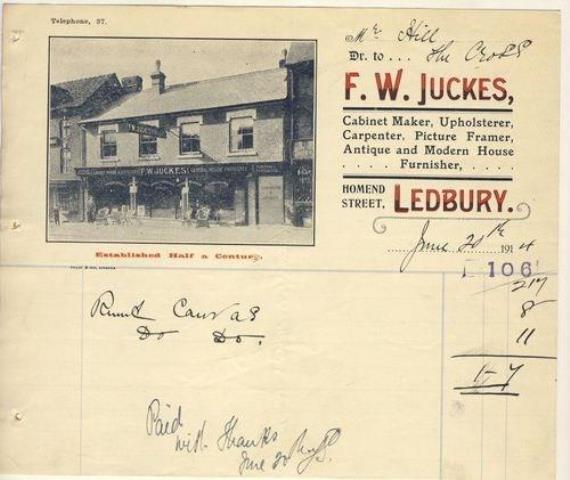 Telephone, 37.
Mr Hill
Dr. to ... The Cross
F. W. JUCKES,
Cabinet Maker, Upholsterer,
Carpenter, Picture Framer,
Antique and Modern House
. . . . Furnisher, . . . .
HOMEND STREET, LEDBURY.
F. W. JUCKES
Established Half a Century.
June 20th 1914
106
Canvas
Do Do.
8
11
1-7
Paid
with Thanks
June 20